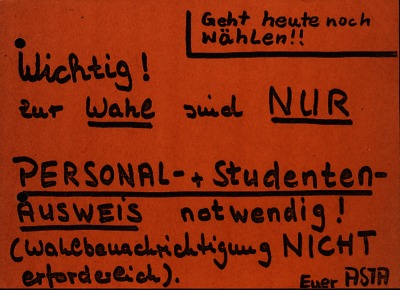 Geht heute noch
wählen!!
Wichtig!
zur Wahl sind NUR
PERSONAL- + Studenten-
AUSWEIS notwendig!
(Wahlbenachrichtigung NICHT
erforderlich).
Euer ASTA